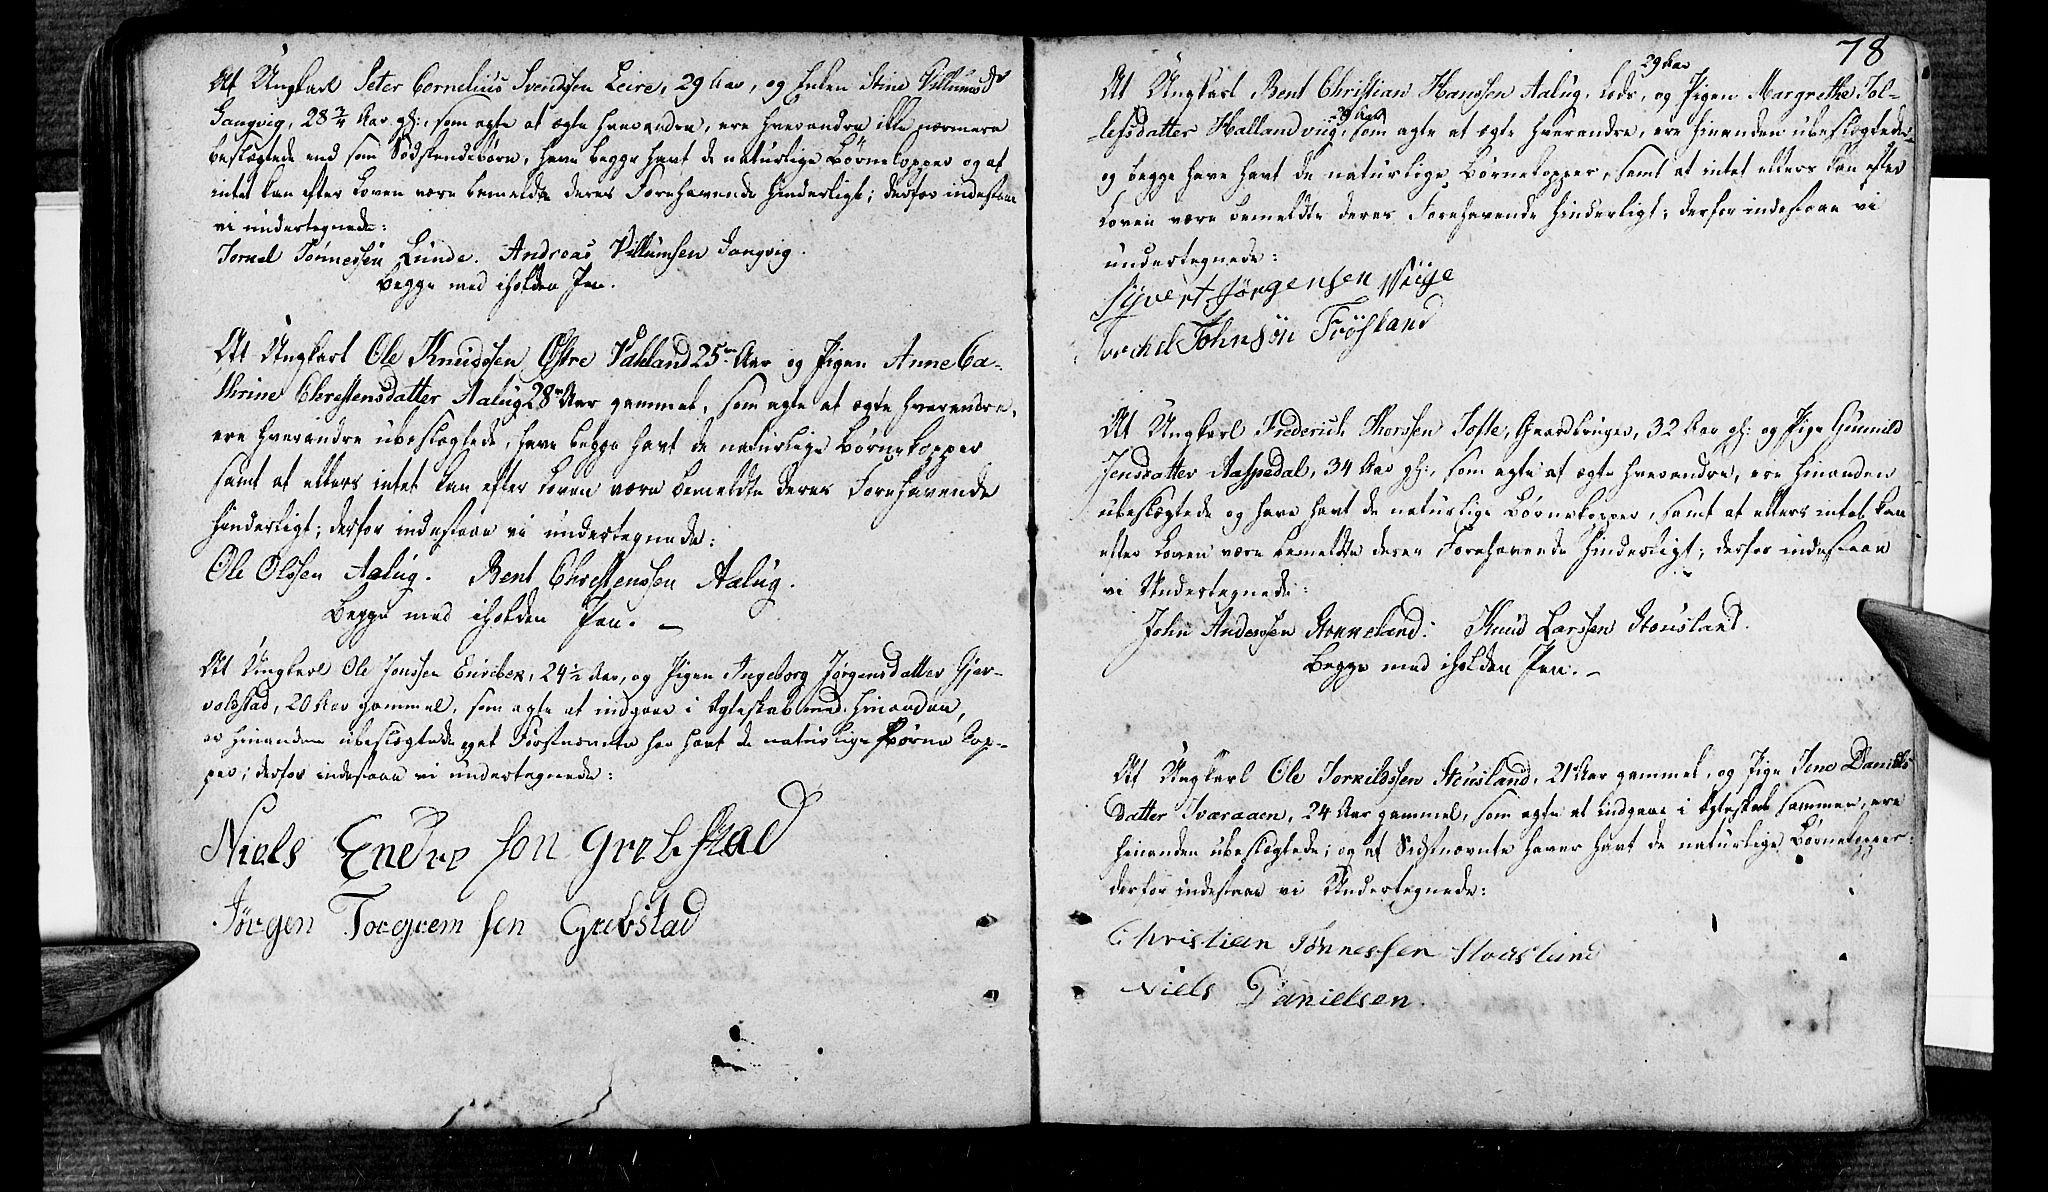 At Ungkarl Peter Cornelius Svendsen Leire, 29 Aar, og Enken Stine Villumsdr
Sangvig, 28 3/4 Aar gl:, som agte at ægte hverandre, ere hverandre ikke nærmere
beslægtede end som Sødskendebørn, have begge havt de naturlige Børnekopper og at
intet kan efter Loven være bemeldte deres Forehavende hinderligt; derfor indestaae
vi undertegnede:
Tørkel Tønnessen Lunde. Andreas Villumsen Sangvig.
begge med iholden Pen.
At Ungkarl Ole Knudssen Østre Vatland 25 Aar og Pigen Anne Ca-
thrine Christensdatter Aalug 28 Aar gammel, som agte at ægte hverandre,
ere hverandre ubeslægtede, have begge havt de naturlige Børnekopper
samt at ellers intet kan efter Loven være bemeldte deres Forehavende
hinderligt; derfor indestaae vi undertegnede:
Ole Olssen Aalug. Bent Christenssen Aalug.
begge med iholden Pen. —
At Ungkarl Ole Jonssen Eireber, 24 1/2 Aar, og Pigen Ingeborg Jørgensdatter Gjer-
voldstad, 20 Aar gammel, som agte at indgaae i Ægteskab med hinanden,
er hinanden ubeslægtede og at Førstnævnte har havt de naturlige Børnekop-
per; derfor indestaae vi undertegnede:
Niels Endre sen Grebstad
Jörgen Torgrem sen Grebstad
78
29 Aar
At Ungkarl Bent Christian Hanssen Aalug, Lods, og Pigen Margrethe Tol-
29 Aar
lefsdatter Hallandviig, som agte at ægte hverandre, ere hinanden ubeslægtede
og begge have havt de naturlige Børnekopper, samt at intet ellers kan efter
Loven være bemeldte deres Forehavende hinderligt; derfor indestaae vi
undertegnede:
Syvert Jörgensen Viige
Torchel Johnsøn Fröisland
At Ungkarl Frederich Thorssen Tofte, Gaardbruger, 32 Aar gl: og Pige Gunnild
Jensdatter Aaspedal, 34 Aar gl:, som agte at ægte hverandre, ere hinanden
ubeslægtede og have havt de naturlige Børnekopper, samt at ellers intet kan
efter Loven være bemeldte deres Forehavende hinderligt; derfor indestaae
vi Undertegnede:
John Anderssen Stonneland: Knud Larssen Stousland.
begge med iholden Pen. —
At Ungkarl Ole Torkildssen Stousland, 21 Aar gammel, og Pige Jene Daniels
datter Tvaraaen, 24 Aar gammel, som agte at indgaae i Ægteskab sammen, ere
hinanden ubeslægtede; og at Sidstnævnte haver havt de naturlige Børnekopper:
derfor indestaae vi Undertegnede:
Christian Tönnessen Stousland
Niels Danielsen.